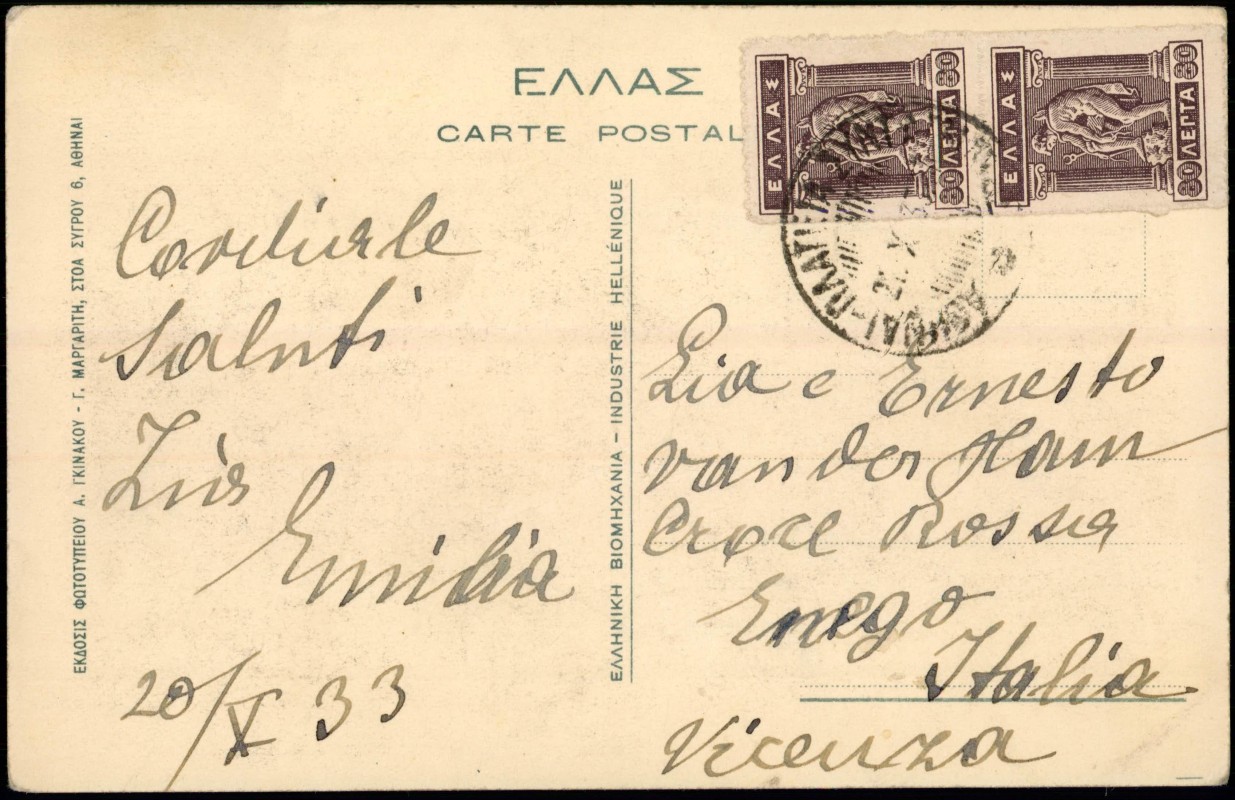 ΕΛΛΑΣ
CARTE POSTAL
ΕΛΛΑΣ
80 ΛΕΠΤΑ 80
ΕΛΛΑΣ
80 ΛΕΠΤΑ 80
ΑΘΗΝΑΙ
21. X
ΕΚΔΟΣΙΣ ΦΩΤΟΤΥΠΕΙΟΥ Α. ΓΚΙΝΑΚΟΥ - Γ. ΜΑΡΓΑΡΙΤΗ, ΣΤΟΑ ΣΥΓΡΟΥ 6, ΑΘΗΝΑΙ
Cordiale
Saluti
Zia
Emilia
20/X 33
ΕΛΛΗΝΙΚΗ ΒΙΟΜΗΧΑΝΙΑ - INDUSTRIE HELLÉNIQUE
Lia e Ernesto
van der Ham
Croce Rossa
Enego
Italia
Vicenza